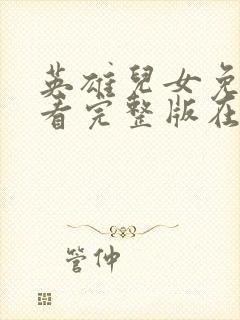 英雄兒女免
看完整版在
管仲